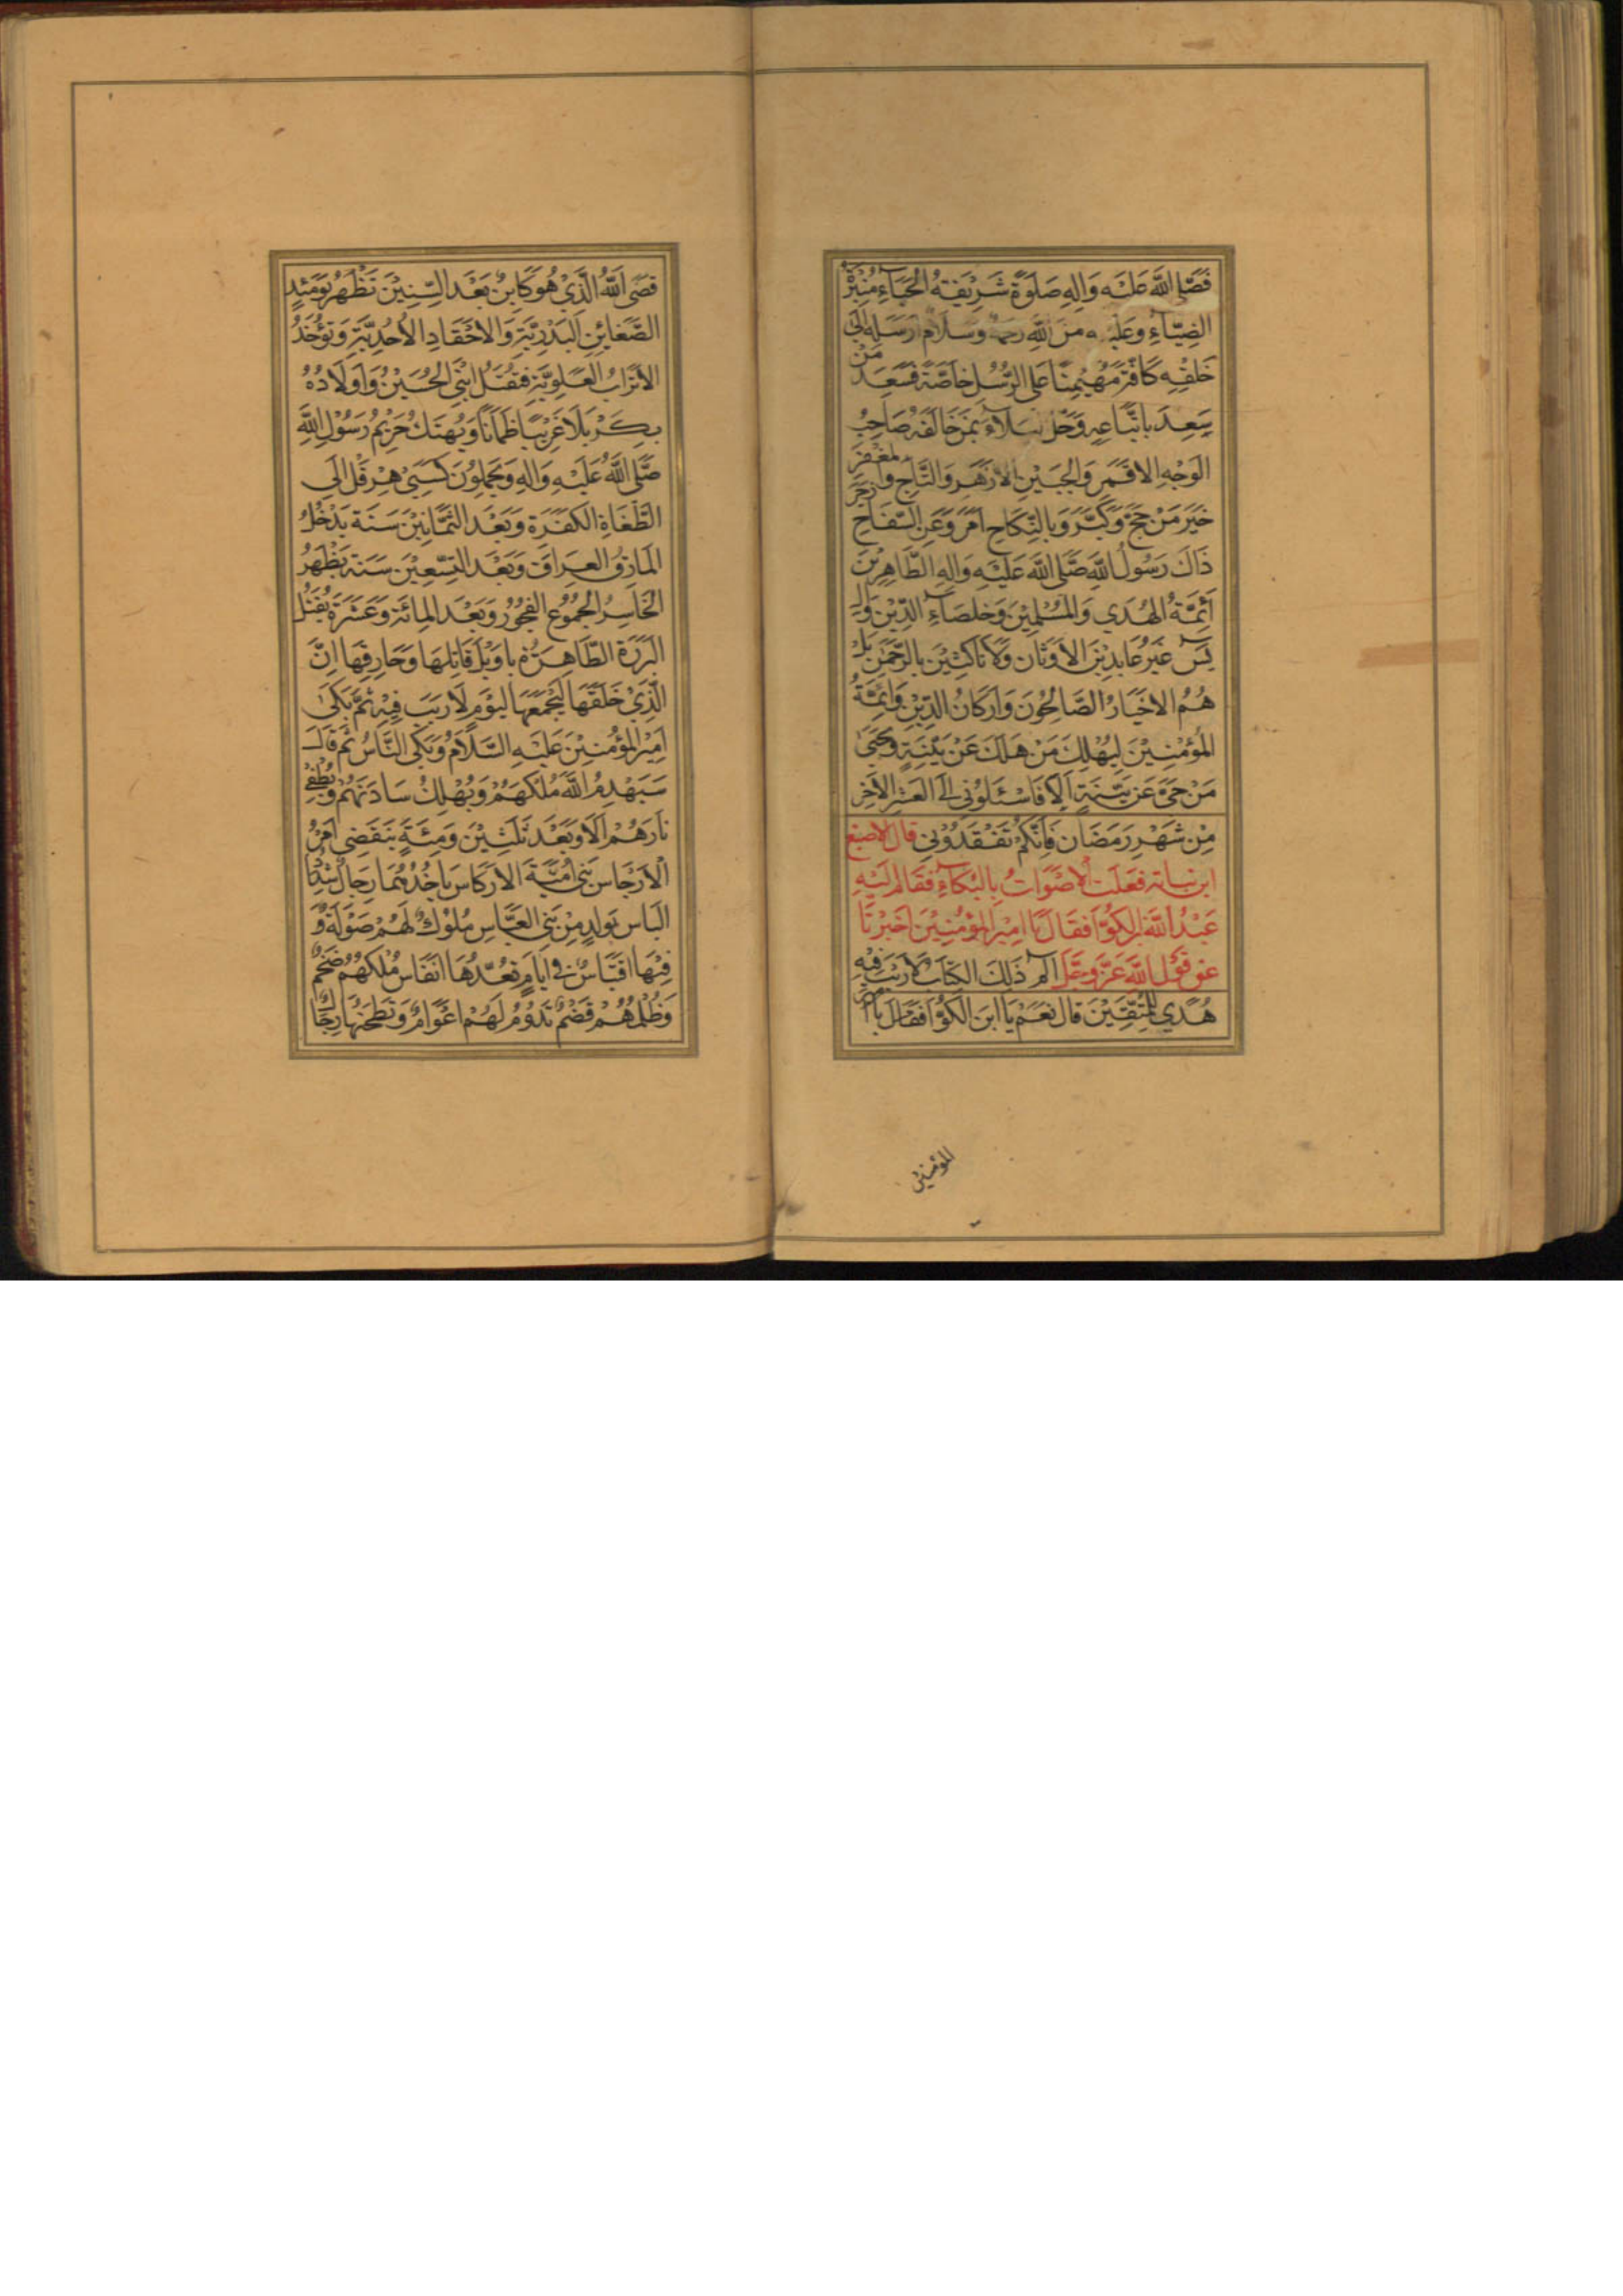 فَصَلَّى اللّٰهُ عَلَيْهِ وَاٰلِهِ صَلٰوةً شَرِيْفَةُ الْحَيَاءِ مُنِيْرَةُ
الضِيَّاءِ وَعَلَيْهِ مِنَ اللّٰهِ رحمة وَسَلَامٌ اَرْسَلَهُ اِلَى
خَلْقِهِ كَافَّةً مُهَيْمِنًا عَلَى الرُّسُلِ خَاصَّةً فَسَعِدَ مَنْ
سَعِدَ بِاتِّبَاعِهِ وَحَلَّ بَلَاءٌ بِمَنْ خَالَفَهُ صَاحِبُ
الْوَجْهِ الْاَقْمَرِ وَالْجَبِيْنِ الْاَزْهَرِ وَالتَّاجِ وَالْمِغْفَرِ
خَيْرُ مَنْ حَجَّ وَكَبَّرَ وَبِالنِّكَاحِ اَمَرَ وَعَنِ السِّفَاحِ زَجَرَ
ذَاكَ رَسُولُ اللّٰهِ صَلَّى اللّٰهُ عَلَيْهِ وَاٰلِهِ الطَّاهِرِيْنَ
اَئِمَّةُ الْهُدَي وَالْمُسْلِمِيْنَ وَخُلَصَاءِ الدِّيْنِ وَلَ
يْسَ غَيْرُ عَابِدِيْنَ الْاَوْثَان وَلَا نَاكِثِيْنَ بِالرَّحْمٰنِ بَلْ
هُمُ الْاَخْيَارُ الصَّالِحُونَ وَاَرْكَانُ الدِّيْنِ وَاَئِمَّةُ
الْمُؤْمِنِيْنَ لِيَهْلِكَ مَنْ هَلَكَ عَنْ بَيِّنَةٍ وَيَحْيَى
مَنْ حَيَّ عَنْ بَيِّنَةٍ اَلَا فَاسْئَلُونِي فِي الْعَشْرِ الْاَخِرِ
مِنْ شَهْرِ رَمَضَان فَاِنَّكُمْ تَفْقَدُوْنِي قال الاصبغ
ابن نباتة فَعَلَتِ الْاَصْوَاتُ بِالْبُكَاءِ فَقَامَ اِلَيْهِ
عَبْدُ اللّٰهِ ابن الْكَوَّا فَقَالَ يَا اَمِيْرَ الْمُؤْمِنِيْنَ اَخْبِرْنَا
عَنْ قَوْلِ اللّٰهِ عَزَّ وَجَلَّ الٓمٓ ذٰلِكَ الْكِتَابُ لَا رَيْبَ فِيْهِ
هُدًي لِلْمُتَّقِيْنَ قَالَ نَعَمْ يَا ابْنَ الْكَوَّا فَقَالَ يَا اَمِيْرَ
المؤمنين
قَضَى اللّٰهُ الَّذِيْ هُوَ كَايِنٌ بَعْدَ السِّتِيْنَ تَظْهَرُ يَوْمَئِذٍ
الضَّغَائِنِ الْبَدْرِيَّةِ وَالْاَحْقَادِ الْاُحُدِيَّةِ وَتُؤْخَذُ
الْاَتْرَابُ الْعَلَوِيَّةِ فَيُقْتَلُ ابْنِيَ الْحُسَيْنُ وَاَوْلَادُهُ
بِكَرْبَلَا غَرِيْبًا ظَمْآنًا وَيُهْتَكُ حَرِيْمُ رَسُوْلِ اللّٰهِ
صَلَّى اللّٰهُ عَلَيْهِ وَاٰلِهِ وَيُحْمَلُونَ كَسَبْيِ هِرَقْلَ اِلَى
الطُّغَاةِ الْكَفَرَةِ وَبَعْدَ الثَّمَانِيْنَ سَنَة يَدْخُلُ
الْمَارِقُ الْعِرَاقَ وَبَعْدَ التِّسْعِيْنَ سَنَة يَظْهَرُ
الْخَاسِرُ الْجَمُوْعُ الْفُجُوْرُ وَبَعْدَ الْمِائَةِ وَعَشَرَة يُقْتَلُ
الْبَرَرَة الطَّاهِرَةُ يا وَيْلَ قَاتِلِهَا وَحَارِقِهَا اِنَّ
الَّذِيْ خَلَقَهَا لَيَجْمَعُهَا لِيَوْمٍ لَا رَيْبَ فِيْهِ ثُمَّ بَكَى
اَمِيْرُ الْمُؤْمِنِيْنَ عَلَيْهِ السَّلَامُ وَبَكَى النَّاسُ ثُمَّ قَالَ
سَيَهْدِمُ اللّٰهُ مُلْكَهُمْ وَيُهْلِكُ سَادَتَهُمْ وَيُطْفِيْ
نَارَهُمْ اَلَا وَبَعْدَ ثَلٰثِيْنَ وَمِئَةٍ يَنْقَضِي اَمْرُ
الْاَرْجَاسِ بَنِي اُمَيَّةَ الْاَرْكَاسِ يَاخُذُهُمَا رِجَالٌ شِدَادُ
الْبَاسِ بِوَلَدٍ مِنْ بَنِي الْعَبَّاسِ مُلُوْكٌ لَهُمْ صَوْلَةٌ وَ
فِيْهَا اقْتِبَاسٌ فِي اَيَّامٍ نَعُدُّهَا اَنْفَاسٌ مُلْكُهُمْ ضَخْمٌ
وَظُلْمُهُمْ قَضْمٌ تَدُوْمُ لَهُمْ اَعْوَامٌ وَتَطْحَنُهَا رِجَالٌ